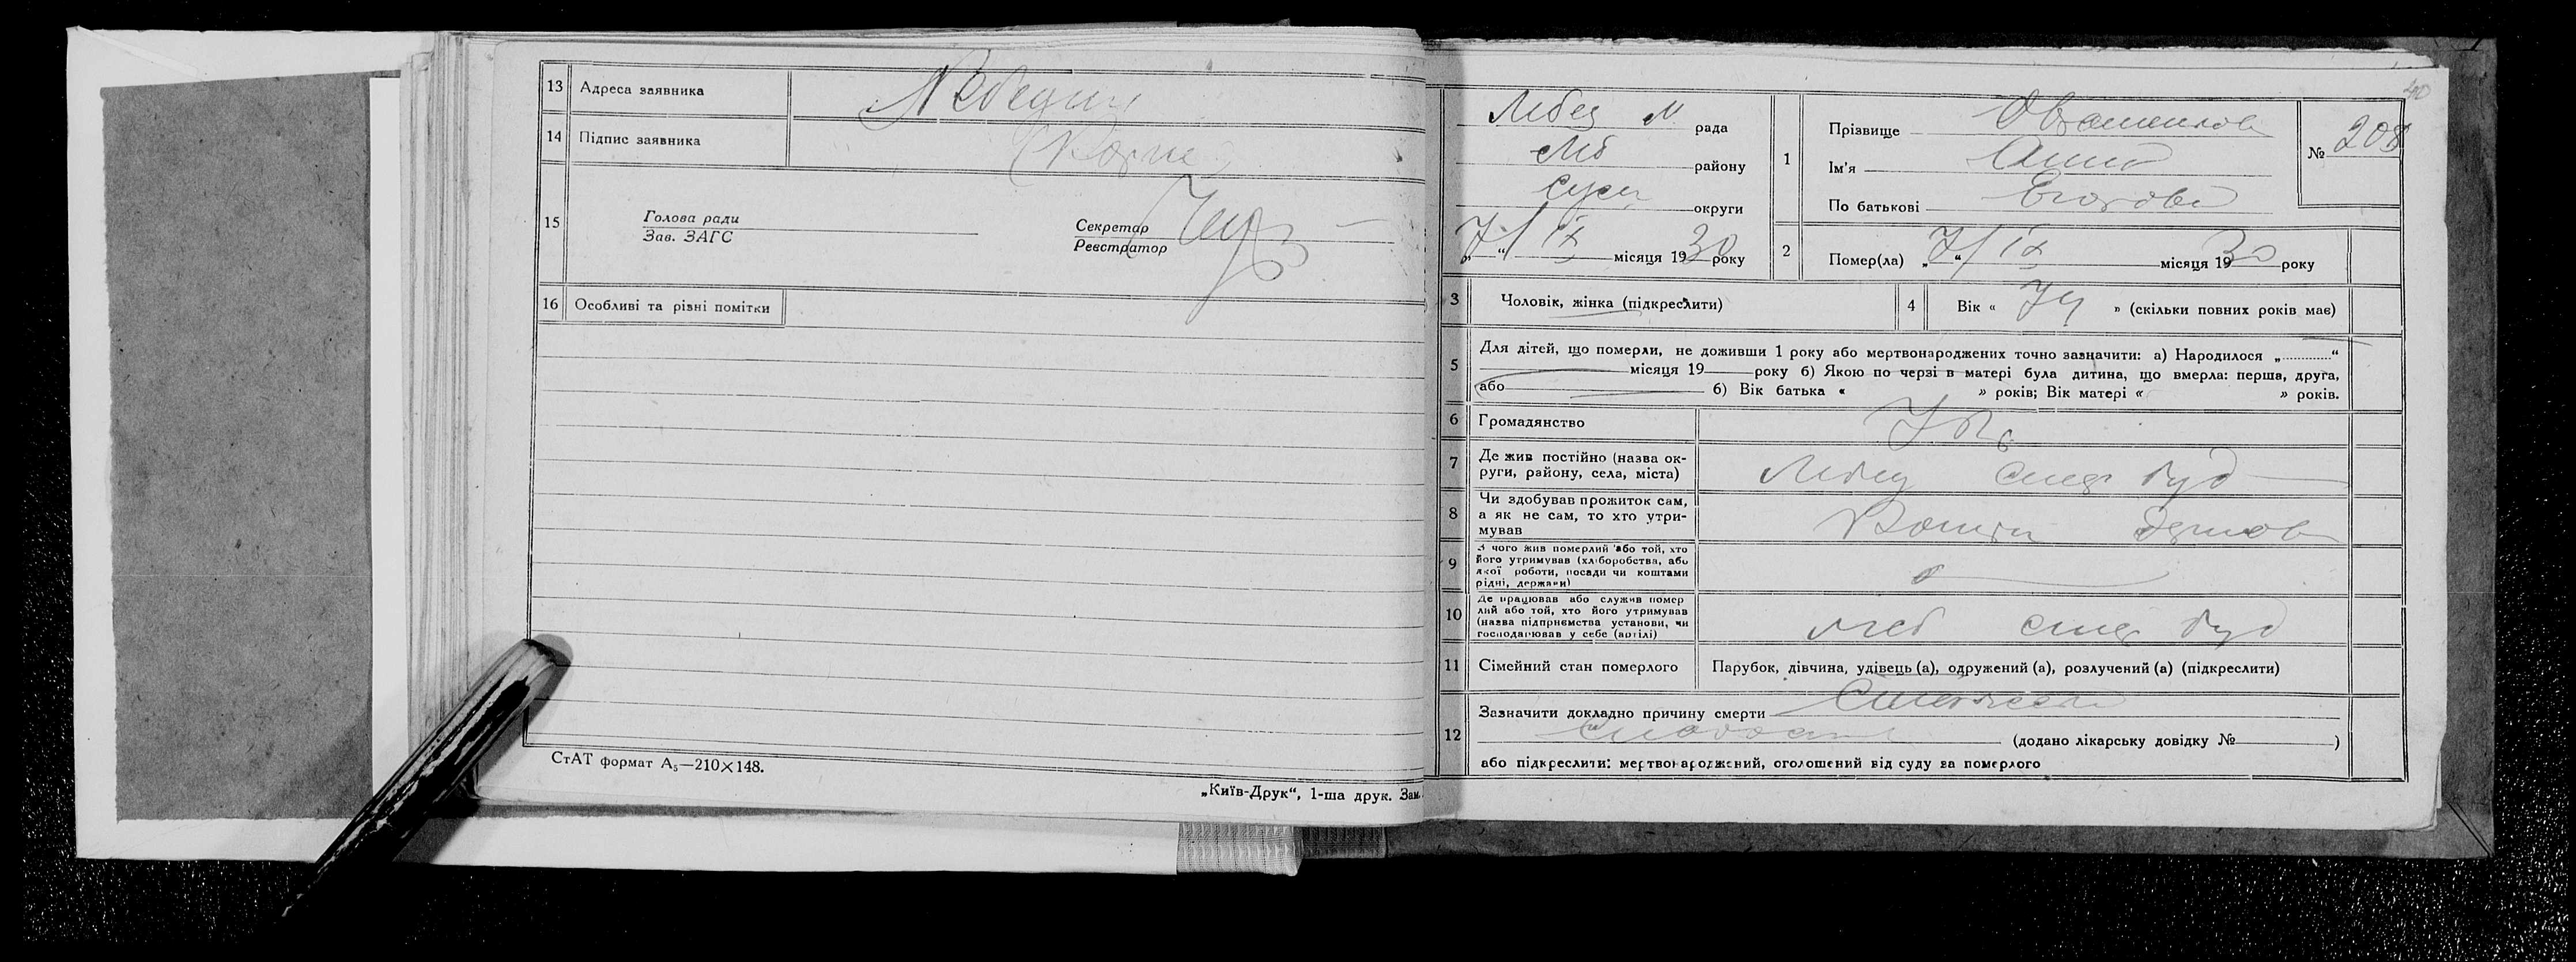 13 Адреса заявника Лебедин
14 Підпис заявника
15 Голова ради
Зав. ЗАГС
Секретар
Реєстратор
16 Особливі та різні помітки
СтАТ формат А5—210×148.
„Київ-Друк“, 1-ша друк. Зам.
40
Лебед М рада
Леб району
Сум округи
„7“ ІХ місяця 1930 року
1 Прізвище
Ім'я Анна
По батькові Егорова
№ 208
2 Помер(ла) „7“ ІХ місяця 1930 року
3 Чоловік, жінка (підкреслити)
4 Вік « 74 » (скільки повних років має)
5 Для дітей, що померли, не доживши 1 року або мертвонароджених точно зазначити: а) Народилося „............“
місяця 19 року б) Якою по черзі в матері була дитина, що вмерла: перша, друга,
або б) Вік батька « » років; Вік матері « » років.
6 Громадянство
7 Де жив постійно (назва ок-
руги, району, села, міста) Лебед буд
8 Чи здобував прожиток сам,
а як не сам, то хто утри-
мував
9 З чого жив померлий або той, хто
його утримував (хліборобства, або
якої роботи, посади чи коштами
рідні, держави)
10 Де працював або служив помер
лий або той, хто його утримував
(назва підприємства установи, чи
господарював у себе (артілі) Леб буд
11 Сімейний стан померлого Парубок, дівчина, удівець (а), одружений (а), розлучений (а) (підкреслити)
12 Зазначити докладно причину смерти Старческая
слабость (додано лікарську довідку № )
або підкреслити: мертвонароджений, оголошений від суду за померлого